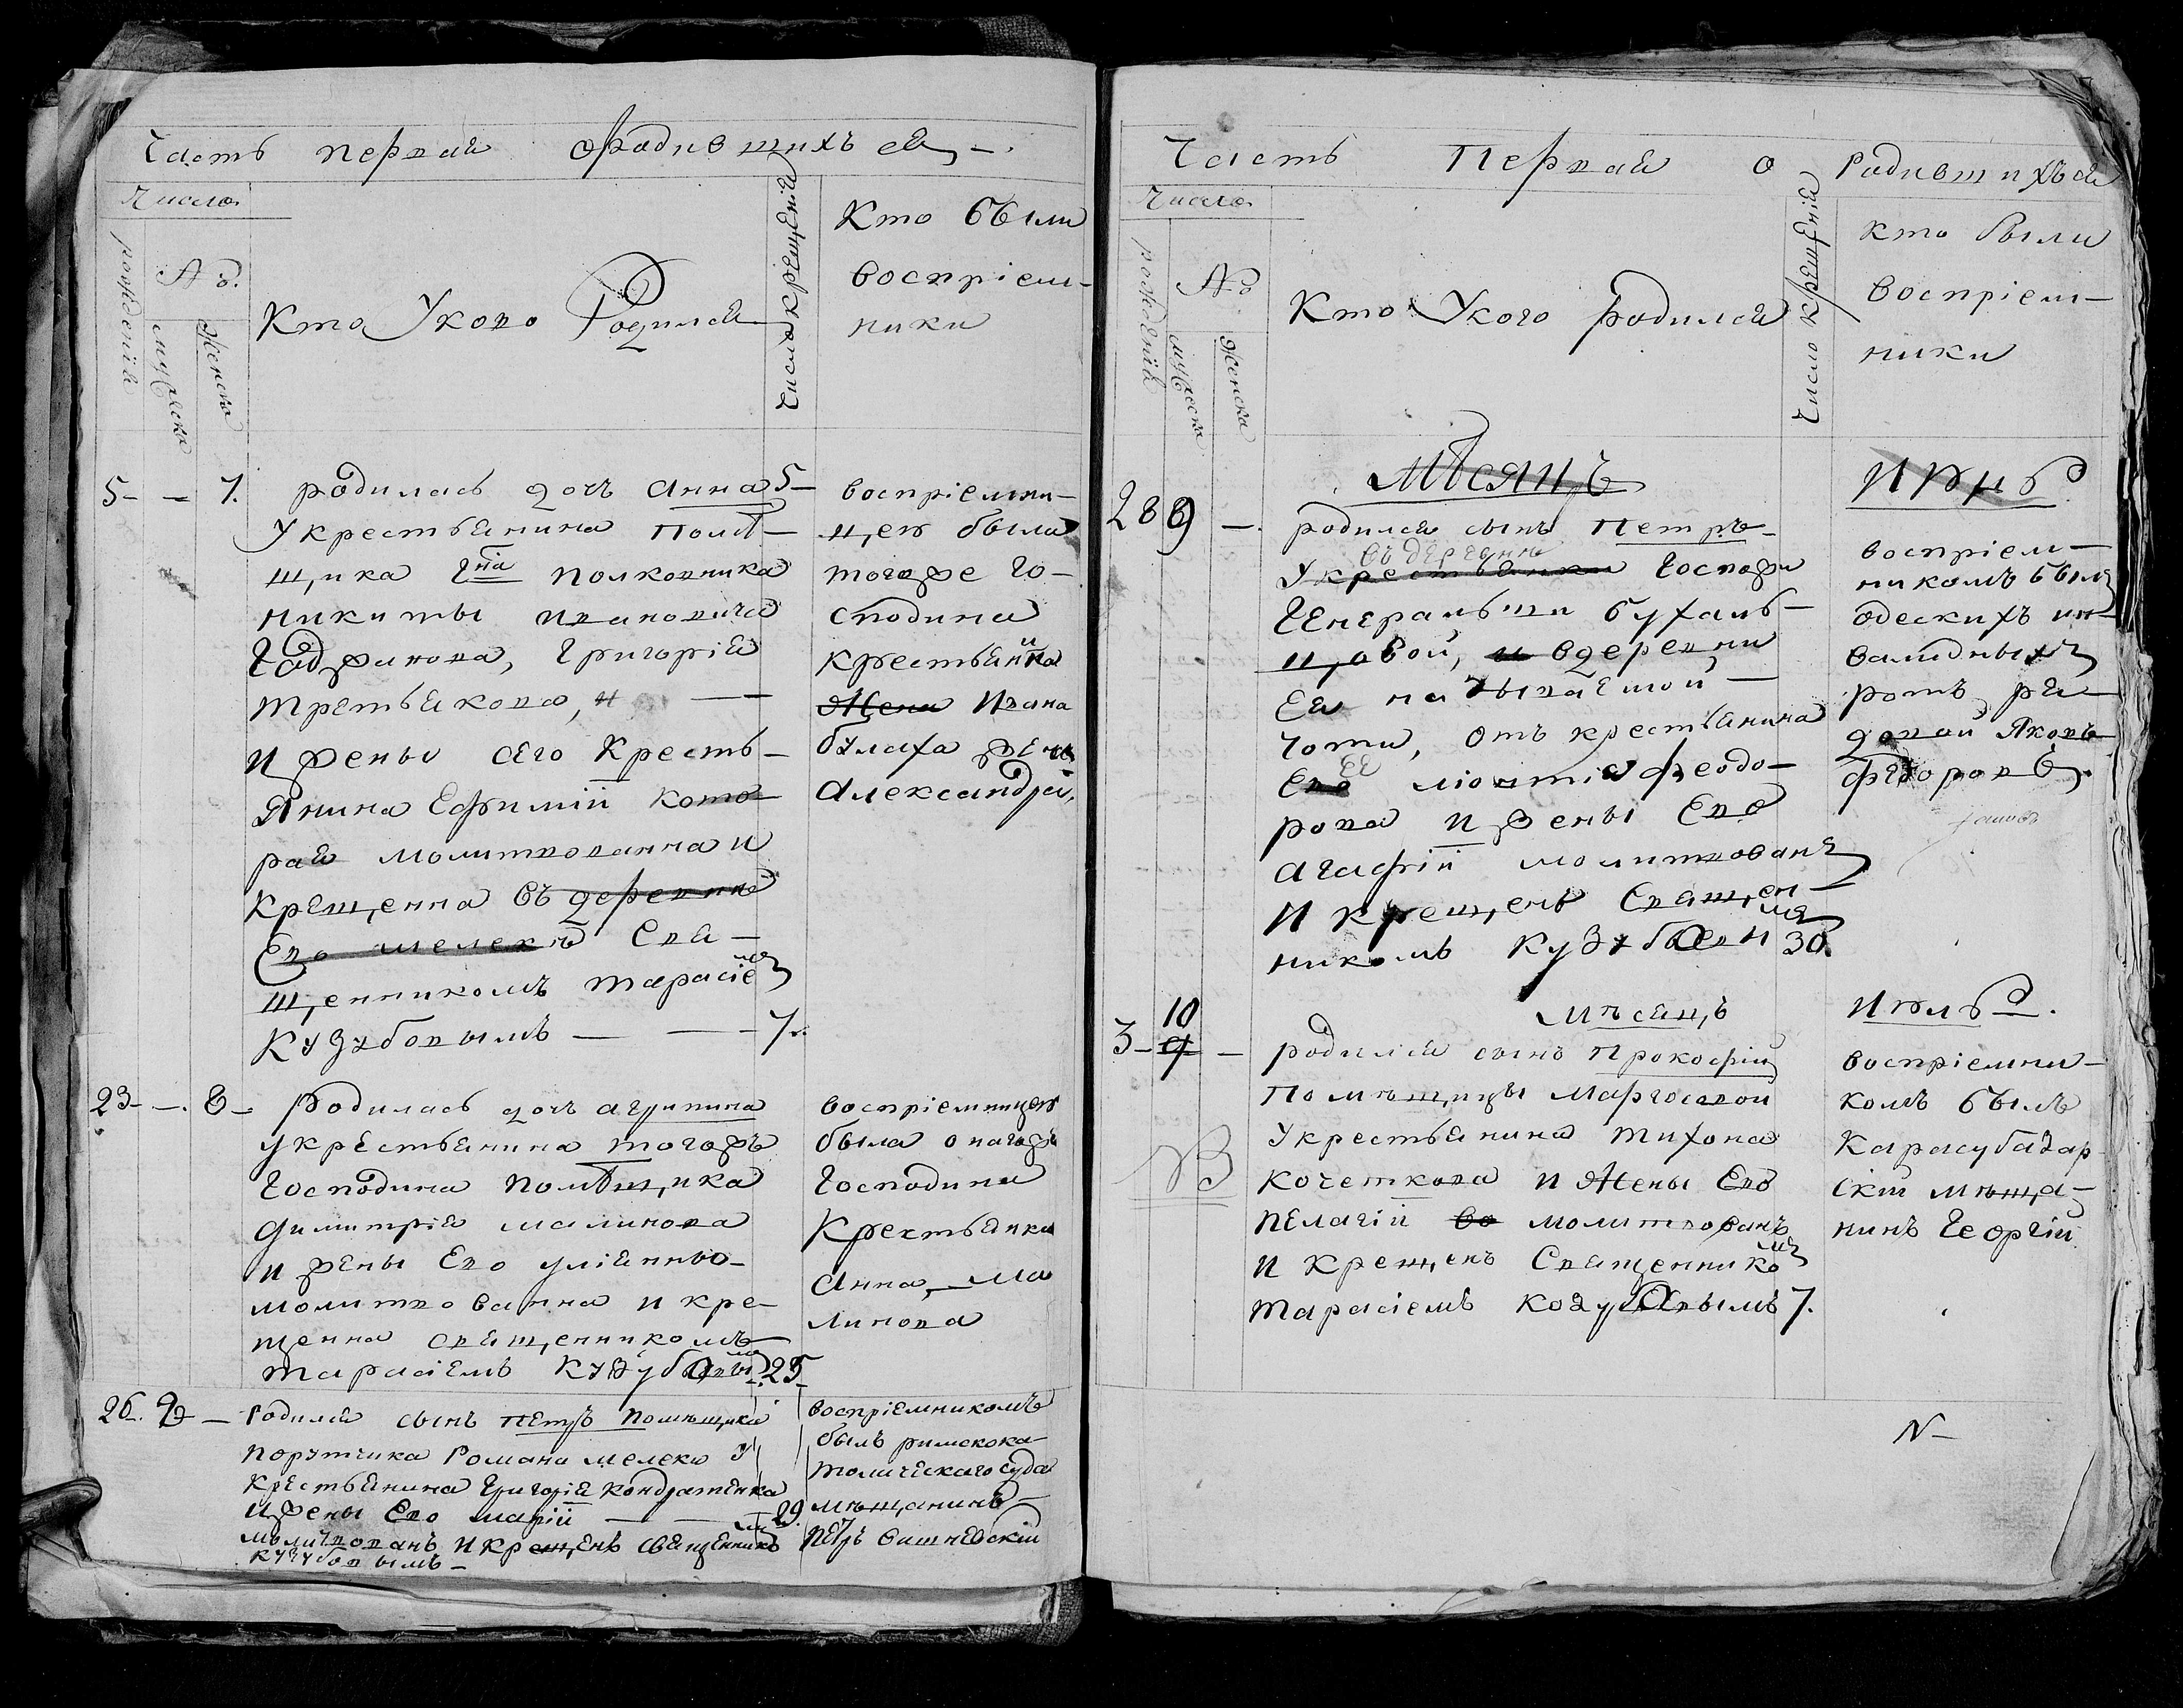 Часть первая о родившихъ ся —.
Число
рожденій
№.
мужеска
женска
Кто Укого Родился
Число крещенія
Кто были
воспріем-
ники
5 — — 7. родилась дочь Анна 5 —
Укрестьянина помѣ-
щика Гна полковника
Никиты Ивановича
Григорія
Третьякова, и —
и жены его кресть-
янина Ефиміи кото-
рая молитвованна и
крещенна въ деревнѣ
Его Мелекъ Свя-
щенникомъ Тарасіемъ
Кузубовымъ — — 7.
воспріемни-
цею была
тогоже Го-
сподина
крестьянина
Жена Ивана
жена
Александра,
23 — —. 8 — Родилась дочь Агрипина
укрестьянина тогожъ
Господина помѣщика
Димитрія Малинова
и жены Его Уліянны
молитвованна и кре-
щенна священникомъ
Тарасіемъ Кузубовымъ. 25
воспріемницею
была онагожъ
Господина
Крестьянка
Анна, Ма
линова
26. 9 — Родился сынъ Петръ помѣщика
порутчика Романа Мелека у
крестьянина Григорія Кондратенка
и жены Его Маріи — — 29.
молитвованъ и крещенъ священникомъ
Кузубовымъ —
воспріемникомъ
былъ римскока-
толическаго суда
мѣщанинъ
Петръ Вишневскій
Часть Первая о Родившихъся
Число
рожденій
№
мужеска
женска
Кто Укого родился
Число крещенія
кто были
воспріем-
ники
Мѣсяцъ Июнь
28 8 9 —. родился сынъ Петръ
въ деревнѣ
Укрестьянки Госпожи
Генеральши Бухаль-
цовой, и вдеревни
Ея называемой —
Чоти, отъ крестьянина
ЕЕ
Его Феодо-
рова и жены Его
Агафіи молитвованъ
и крещенъ Священ-
никомъ Кузубовымъ 30.
воспріем-
никомъ былъ
одескихъ ин-
валидныхъ
ротъ ря-
довой Яковъ
Федоровъ.
10 Мѣсяцъ Июль.
3 — 9 — родился сынъ Прокофій
Помѣщицы Маргосовой
укрестьянина Тихона
Кочеткова и Жены Его
Пелагіи во молитвованъ
и крещенъ Священникомъ
Тарасіемъ Козубовымъ 7.
воспріемни-
комъ былъ
Карасубазар
скій мѣща-
нинъ Георгій
NB
N —